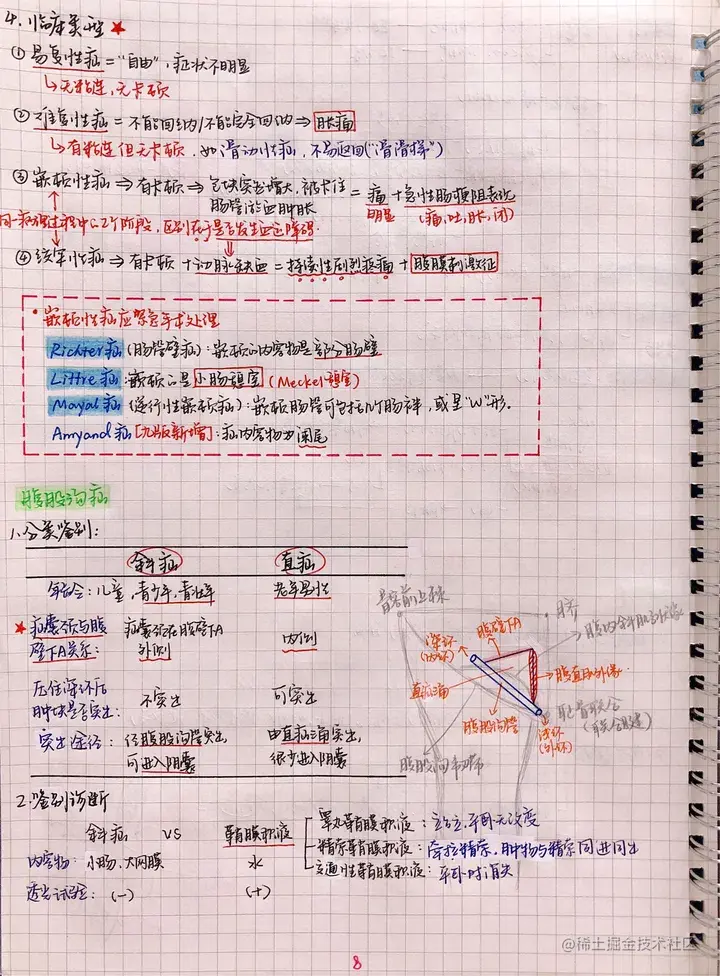 4.临床类型 ★
① 易复性疝="自由",症状不明显
↳无粘连,无卡顿
② 难复性疝=不能回纳/不能完全回纳⇒胀痛
↳有粘连但无卡顿.如滑动性疝,不易返回("滑滑梯")
③ 嵌顿性疝⇒有卡顿⇒包块突出增大,被卡住=痛+急性肠梗阻表现
肠管淤血肿胀 明显 (痛,吐,胀,闭)
同一病理过程中的2个阶段,区别在于是否发生血运障碍.
④ 绞窄性疝⇒有卡顿+动脉缺血=持续性剧烈疼痛+腹膜刺激征
*嵌顿性疝应紧急手术处理
Richter疝(肠管壁疝):嵌顿的内容物是部分肠壁
Littre疝:嵌顿的是小肠憩室(Meckel憩室)
Mayal疝(逆行性嵌顿疝):嵌顿肠管可包括几个肠袢,或呈"W"形.
Amyand疝[九版新增]:疝内容物为阑尾
腹股沟疝
1.分类鉴别:
斜疝 直疝
年龄:儿童,青少年,青壮年 老年男性
★疝囊颈与腹壁下A关系: 疝囊颈在腹壁下A外侧 内侧
压住深环后肿块是否突出: 不突出 可突出
突出途径: 经腹股沟管突出,可进入阴囊 由直疝三角突出,很少进入阴囊
髂前上棘
脐
深环(内环)
腹壁下A
直疝三角
腹直肌外缘
腹股沟管
浅环(外环)
腹股沟韧带
2.鉴别诊断
斜疝 VS 鞘膜积液
睾丸鞘膜积液:站立,平卧无改变
精索鞘膜积液:牵拉精索,肿物与精索同进同出
交通性鞘膜积液:平卧时消失
内容物: 小肠.大网膜 水
透光试验: (-) (+)
8
@稀土掘金技术社区